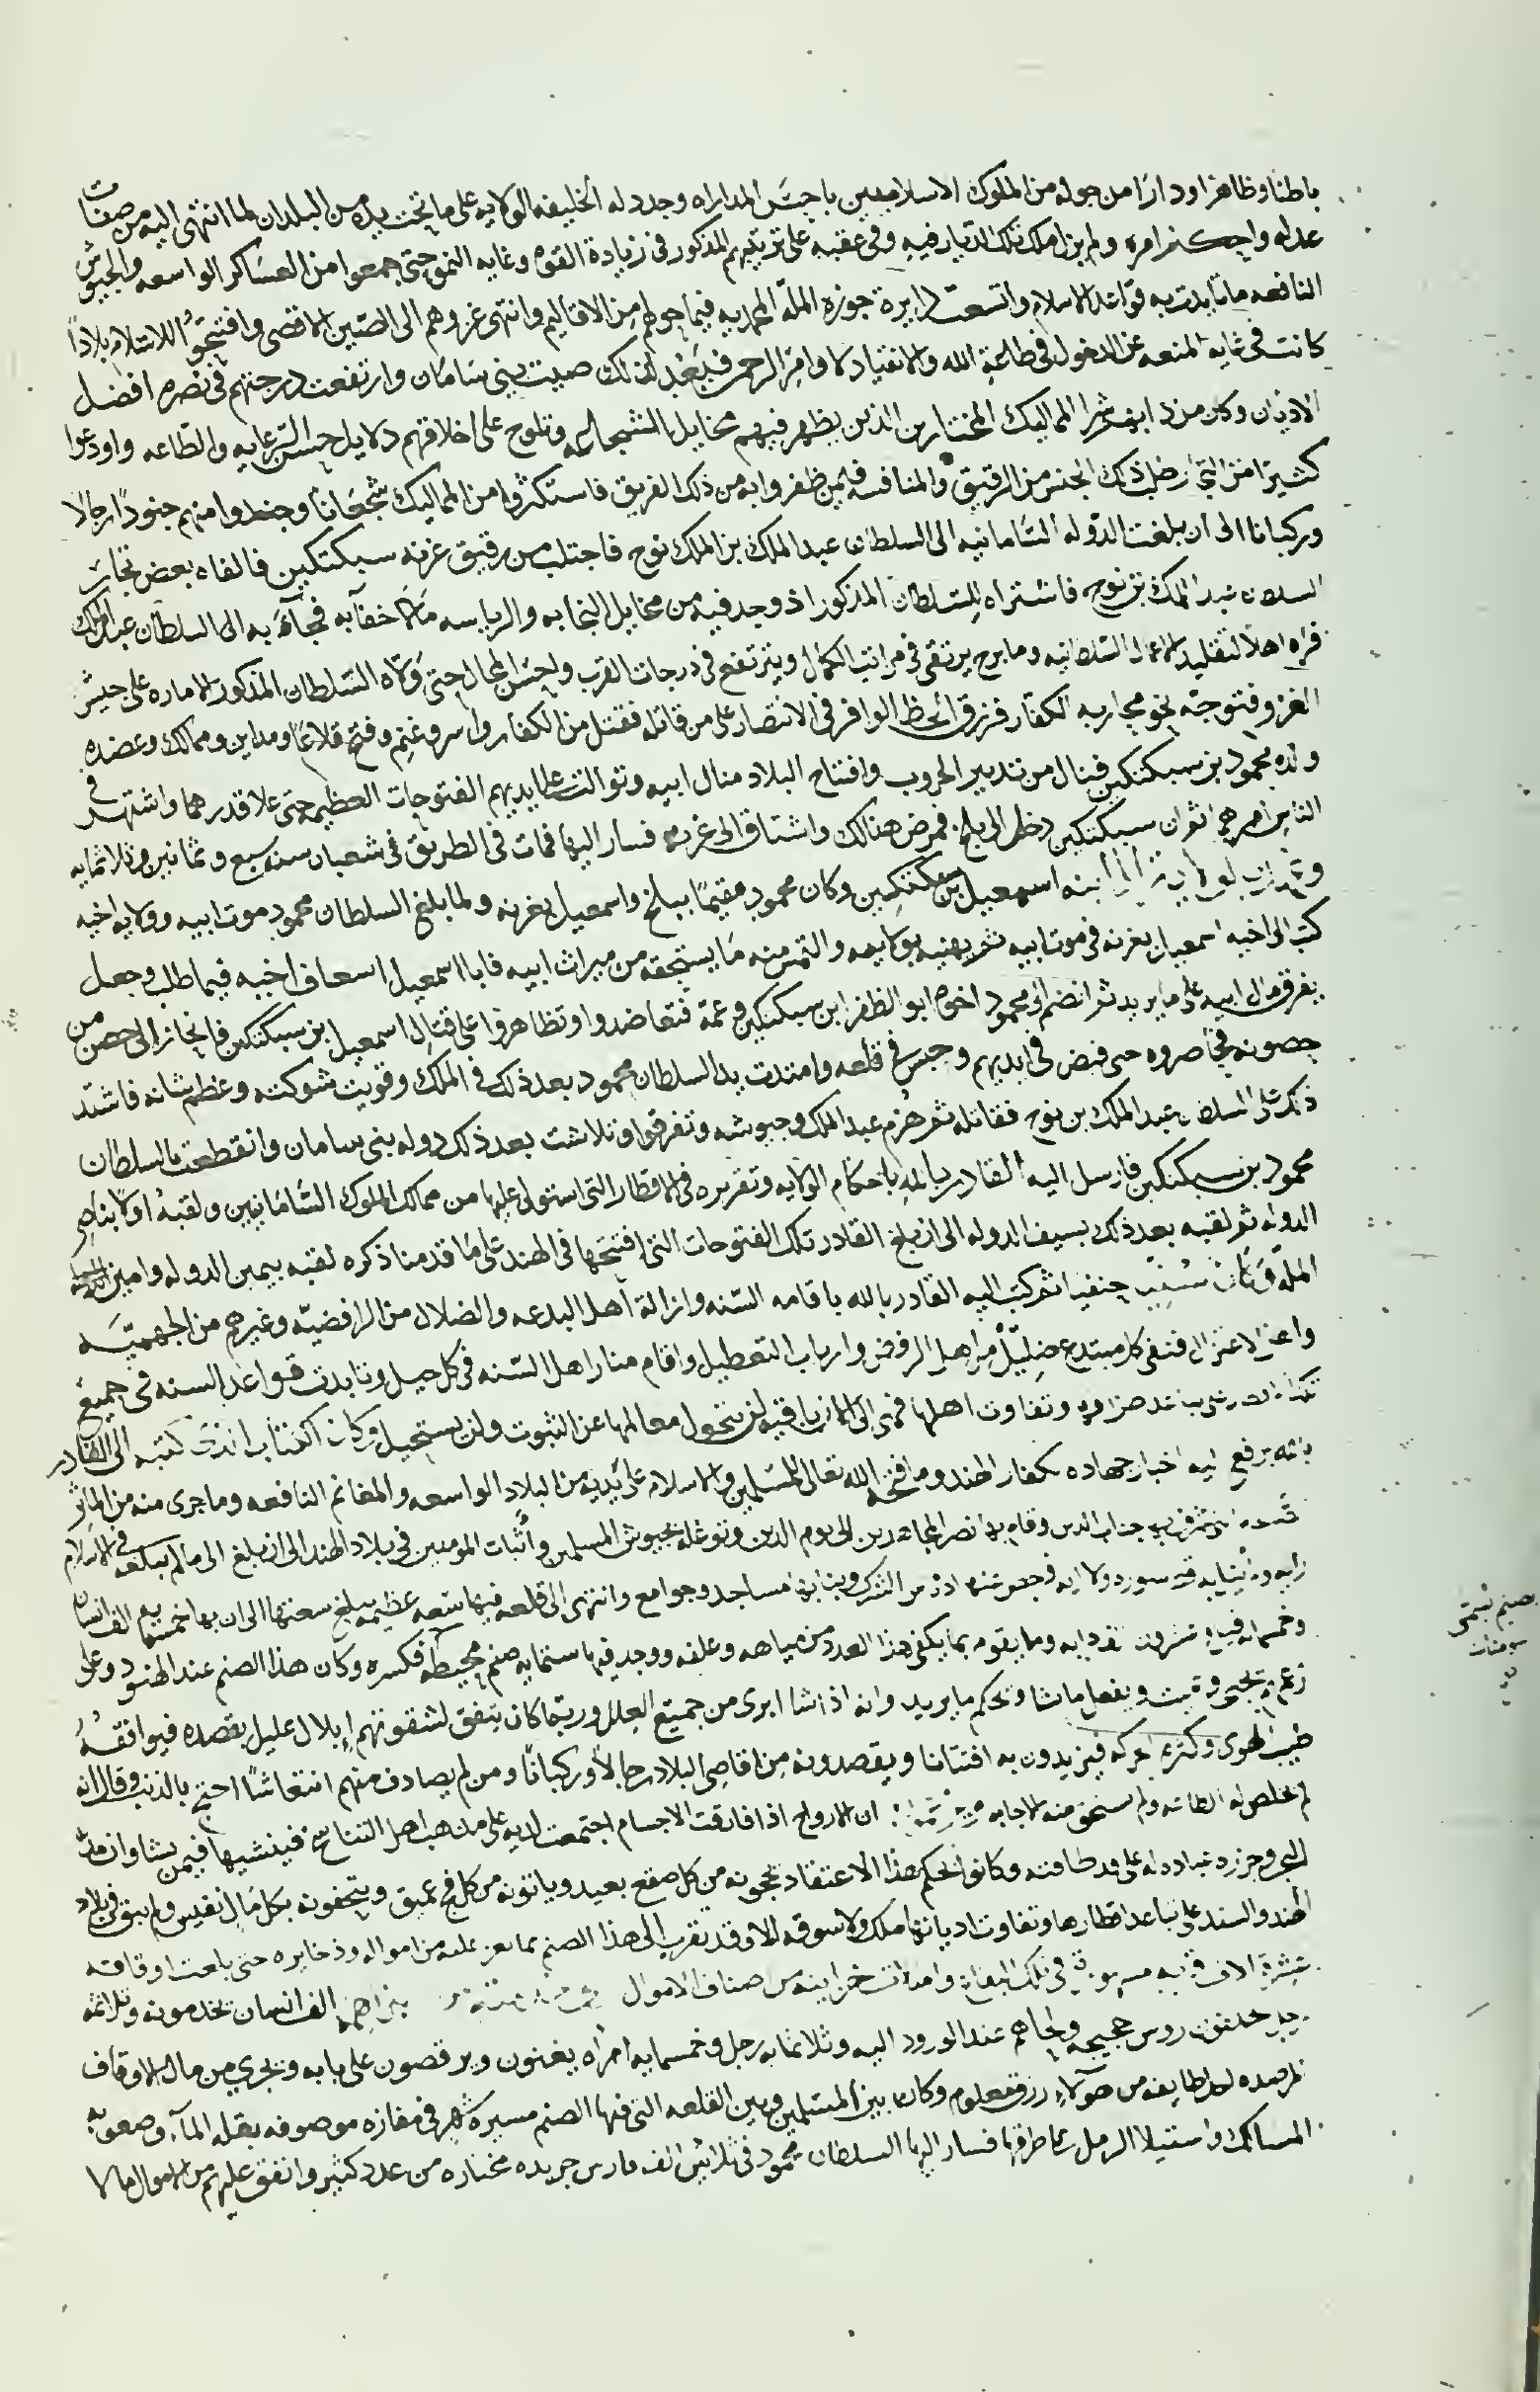 باطنا وظاهرا ودارا من حوله من الملوك الاسلاميين باحسن المداراه وجدد له الخليفه الولايه على ما تحت يده من البلدان لما انتهى اليه من صفات
عدله واحكام امره ولم يزل ملك تلك الديار فيه وفى عقبه على ترتيبهم المذكور فى زيادة القوه وغايه النمو حتى جمعوا من العساكر الواسعه والجيوش
النافعه ما تايدت به قواعد الاسلام واتسعت دايرة حوزه الملة المحمديه فيما حولهم من الاقاليم وانتهى غزوهم الى الصين الاقصى وافتتحوا للاسلام بلادًا
كانت فى غايه المنعه عن الدخول فى طاعة الله والانقياد لاوامر الرحمن فبَعُد لذلك صيت بنى سامان وارتفعت درجتهم فى نصرهم افضل
الاديان وكان من دابهم شرا المماليك المختارين الذين يظهر فيهم مخايل الشجاعه وتلوح على اخلاقهم دلايل حسن الرعايه والطاعه واودعوا
كثيرا من التجار طلب ذلك الجنس من الرقيق والمنافسه فيمن ظفروا به من ذلك الفريق فاستكثروا من المماليك شجعانا وجندوا منهم جنودًا رجالا
وركبانا الى ان بلغت الدوله السامانيه الى السلطان عبد الملك بن الملك نوح فاجتلب من رقيق غزنه سبكتكين فالفاه بعض تجار
السلطان عبد الملك بن نوح فاشتراه للسلطان المذكور اذ وجد فيه من مخايل النجابه والرياسه ما لا خفآ به فجآء به الى السلطان عبد الملك
فراه اهلا لتقليد الاعمال السلطانيه وما برح يرتقى فى مراتب الكمال ويترتفع فى درجات القرب واحسن الحال حتى وَلّاه السلطان المذكور الاماره على جيش
الغزو فتوجه نحو محاربه الكفار فرزق الحظ الوافر فى الانتصار على من قاتله فقتل من الكفار واسر وغنم وفتح قلاعًا ومداين وممالك وعضده
ولده محمود بن سبكتكين فنال من تدبير الحروب وافتتاح البلاد منال ابيه وتوالت على ايديهم الفتوحات العظيمه حتى علا قدرهما واشتهر فى
الناس امرهما ثم ان سبكتكين دخل الى بلخ فمرض هنالك واشتاق الى غزنه فسار اليها فمات فى الطريق فى شعبان سنه سبع وثمانين وثلاثمايه
ابنه اسمعيل بن سبكتكين وكان محمود مقيمًا ببلخ واسمعيل بغزنه ولما بلغ السلطان محمود موت ابيه وولايه اخيه
كتب الى اخيه اسمعيل بغزنه فى موت ابيه ثم يهنيه بولايته والتمس منه ما يستحقه من ميراث ابيه فابا اسمعيل اسعاف اخيه فيما طلب وجعل
يفرق مال ابيه على ما يريد ثم انضم الى محمود اخوه ابو الظفر ابن سبكتكين وعمه فتعاضدوا وتظاهروا على قتال اسمعيل بن سبكتكين فانحاز الى حصن من
حصونه فحاصروه حتى قبض فى ايديهم وحبس فى قلعه وامتدت يد السلطان محمود بعد ذلك فى الملك وقويت شوكته وعظم شانه فاشتد
ذلك على السلطان عبد الملك بن نوح فقاتله ثم هُزم عبد الملك وجيوشه وتفرقوا وتلاشت بعد ذلك دوله بنى سامان وانقطعت بالسلطان
محمود بن سبكتكين فارسل اليه القادر بالله باحكام الولايه وتقريره فى الاقطار التى استولى عليها من ممالك الملوك السامانيين ولقبه اولا بناصر
الدوله ثم لقبه بعد ذلك بسيف الدوله الى ان بلغ القادر تلك الفتوحات التى افتتحها فى الهند على ما قدمنا ذكره لقبه بيمين الدوله وامين
المله وكان حنفيا ثم كتب اليه القادر بالله باقامه السنه وازالة اهل البدعه والضلال من الرافضيّه وغيرهم من الجهميّه
واهل الاعتزال فنفى كل مبتدع ضلّيل من اهل الرفض وارباب التعطيل واقام منار اهل السنه فى كل جيل وتايدت قواعد السنه فى جميع
وتفاوت اهلها فهى الى الان باقيه لن تتحول معالمها عن الثبوت ولن يستحيل وكان كتبه الى القادر
بالله يرفع اليه اخبار جهاده لكفار الهند وما فتحه الله تعالى للمسلمين والاسلام على يديه من البلاد الواسعه والمغانم النافعه وما جرى منه من الماثر
جناب الدين وقام بها نصر المجاهدين الى يوم الدين وتوغله بجيوش المسلمين واثبات المومنين فى بلاد الهند الى ان بلغ الى ما لم يبلغه فى الاسلام
رايه سوره ولا ايه ادناس الشرك وبنا بها مساجد وجوامع وانتهى الى قلعه فيها سعه عظيمه يبلغ سعتها الى ان بها خمسمايه الف انسان
وخمسمايه فيل وعشرون الف دابه وما يقوم بما يكفى هذا العدد من مياهه وعلفه ووجد فيها ستمايه صنم محيطه فكسره وكان هذا الصنم عند الهنود وعلى
زعمهم يحيى ويميت ويفعل ما يشا ويحكم ما يريد وانه اذا شا ابرى من جميع العلل وربما كان يتفق لشقوتهم إبلال عليل يقصده فيوافقه
طيب الهوى وكثرة الحركه فيزيدون به افتتانا ويقصدونه من اقاصى البلاد رجالا وركبانًا ومن لم يصادف منهم انتعاشًا احتج بالذنب وقال انه
لم يخلص له الطاعه ولم يستحق منه الاجابه ان الارواح اذا فارقت الاجسام اجتمعت لديه على مذهب اهل التناسخ فينشيها فيمن يشا وان مدّ
البحر وجزره عباده له على قدر طاقته وكانوا بحكم هذا الاعتقاد يحجونه من كل صقع بعيد وياتونه من كل فج عميق ويتحفونه بكل مال نفيس ولم يبق فى بلاد
الهند والسند على تباعد اقطارها وتفاوت اديانها ملك ولا سوقه الا وقد تقرب الى هذا الصنم بما يعز عليه من امواله وذخايره حتى بلغت اوقافه
عشرة الاف قريه مشهوره فى تلك البقاع وامتلات خزاينه من صناف الاموال الف انسان يخدمونه وثلاثمايه
رجل يحلقون روس حجيجه ولحاهم عند الورود اليه وثلاثمايه رجل وخمسمايه امراه يغنون ويرقصون على بابه ويجرى من مال الاوقاف
المرصده له لكل طايفه من هولاء رزق معلوم وكان بين المسلمين وبين القلعه التى فيها الصنم مسيرة شهر فى مفازه موصوفه بقله المآء وصعوبه
المسالك واستيلا الرمل على طرقها فسار اليها السلطان محمود فى ثلاثين الف فارس جريده مختاره من عدد كثير وانفق عليهم من الاموال ما لا
صنم يسمى
سومنات